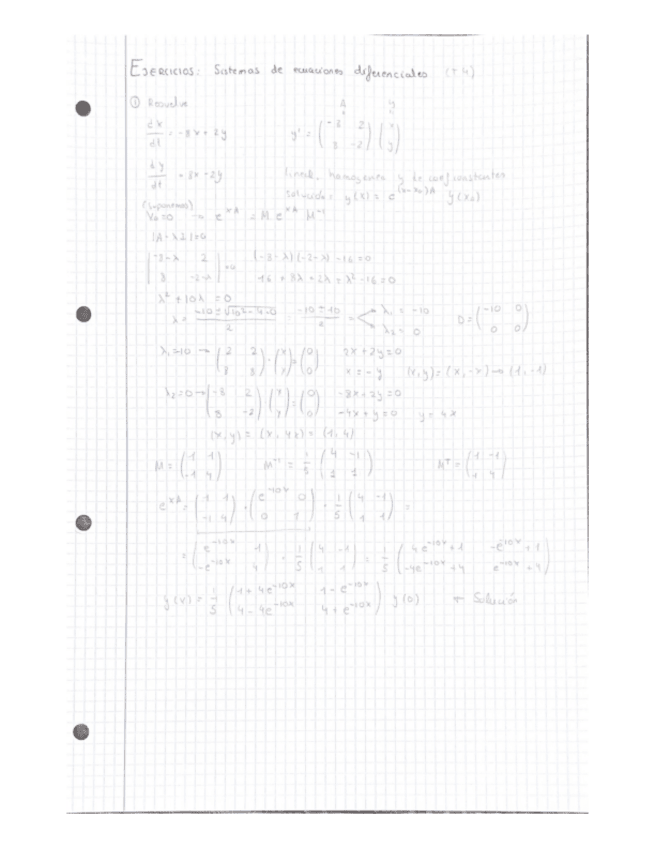 EJERCICIOS: Sistemas de ecuaciones diferenciales (T4)
① Resuelve
dx/dt = -8x + 2y    y' = (-8 2; 8 -2) (x; y)    A    y
dy/dt = 8x - 2y    lineal, homogéneo y de coef. constantes
solución: y(x) = e^(x-x₀)A y(x₀)
(suponemos)
x₀=0 → e^xA = M e^xΛ M⁻¹
|A-λI|=0
|-8-λ 2; 8 -2-λ| = 0    (-8-λ)(-2-λ) -16 = 0
16 + 8λ + 2λ + λ² - 16 = 0
λ² + 10λ = 0
λ = (-10 ± √(10² - 4·0))/2 = (-10 ± 10)/2 = λ₁ = -10    λ₂ = 0    D = (-10 0; 0 0)
λ₁=-10 → (2 2; 8 8) · (x; y) = (0; 0)    2x + 2y = 0
x = -y    (x,y) = (x,-x) → (1,-1)
λ₂=0 → (-8 2; 8 -2) · (x; y) = (0; 0)    -8x + 2y = 0
-4x + y = 0    y = 4x
(x,y) = (x, 4x) = (1,4)
M = (1 1; -1 4)    M⁻¹ = 1/5 (4 -1; 1 1)    Mᵀ = (1 -1; 1 4)
e^xA = (1 1; -1 4) · (e^-10x 0; 0 1) · 1/5 (4 -1; 1 1) =
= (e^-10x 1; -e^-10x 4) · 1/5 (4 -1; 1 1) = 1/5 (4e^-10x + 1 -e^-10x + 1; -4e^-10x + 4 e^-10x + 4)
y(x) = 1/5 (1 + 4e^-10x 1 - e^-10x; 4 - 4e^-10x 4 + e^-10x) y(0) ← Solución